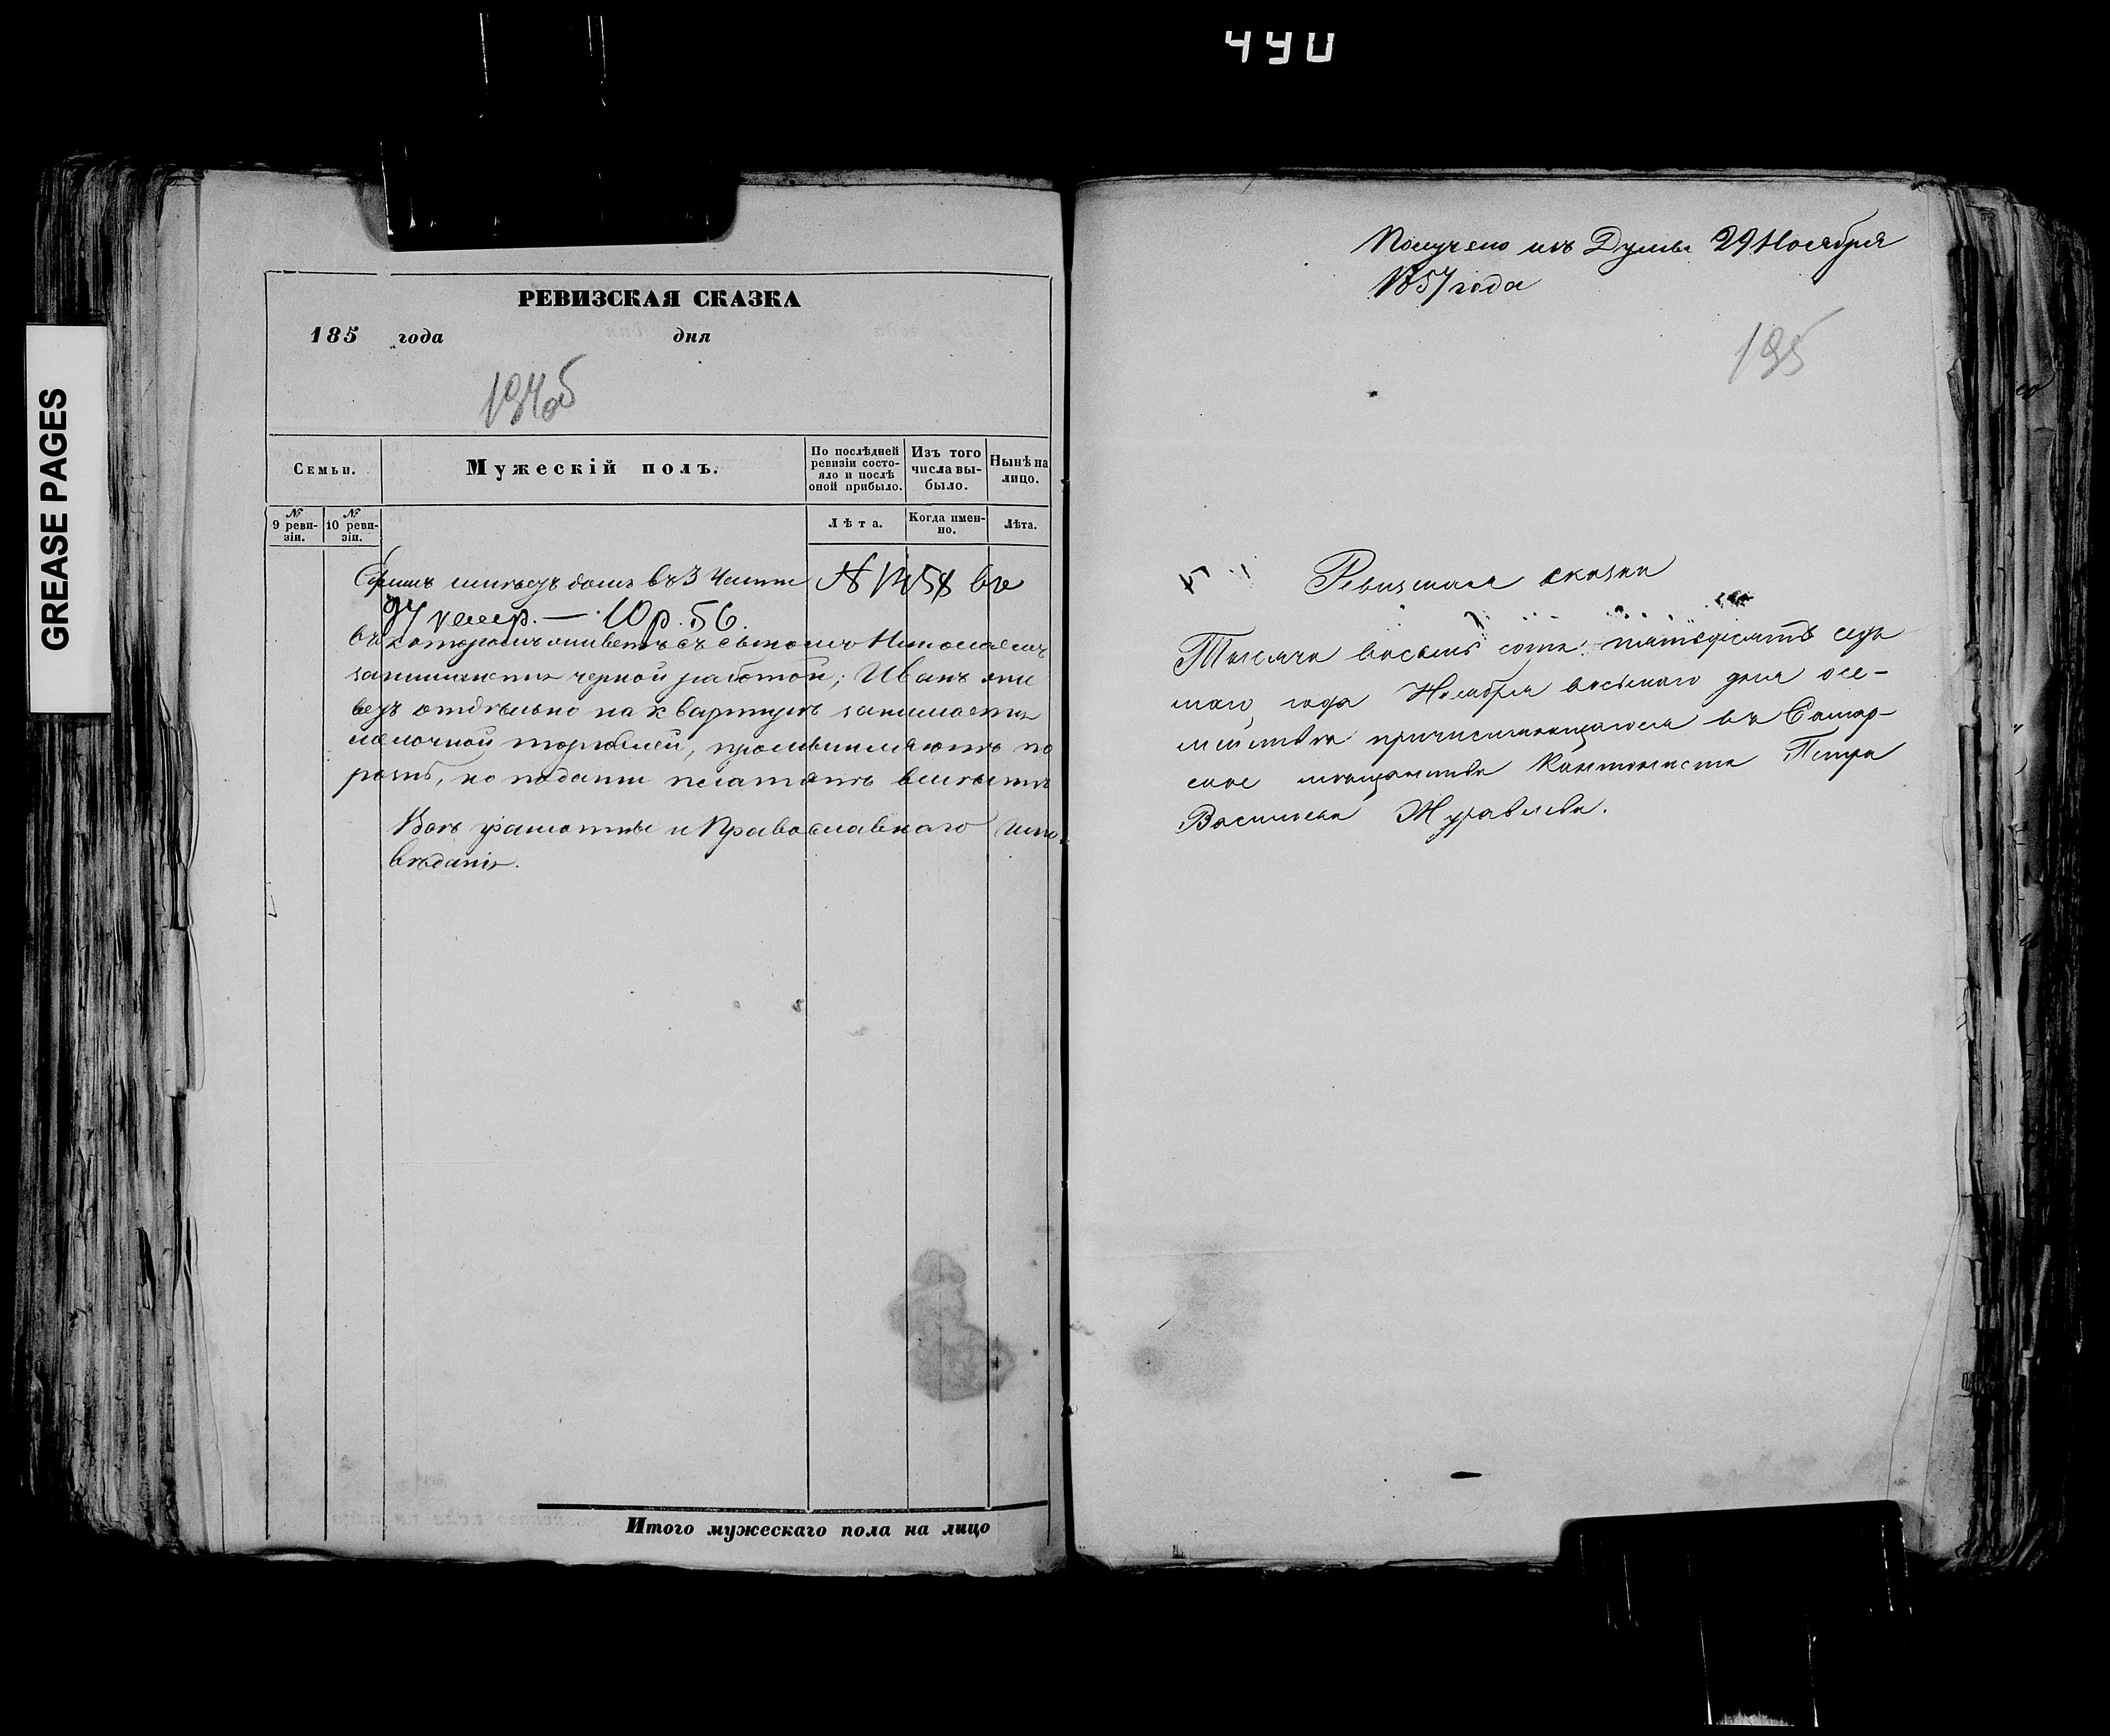 490
GREASE PAGES
РЕВИЗСКАЯ СКАЗКА
185 года дня
194об
Семьи.
Мужескій полъ.
По послѣдней ревизіи состояло и послѣ оной прибыло.
Изъ того числа выбыло.
Нынѣ на лицо.
№ 9 ревизіи.
№ 10 ревизіи.
Лѣта.
Когда именно.
Лѣта.
домъ въ 3 Части
10 р. 56.
въ которомъ живетъ съ сыномъ Николаемъ
занимается черной работой; Иванъ жи
ветъ отдѣльно на квартирѣ занимается
мѣлочной торговлей, по
рознь, но подати платятъ вмѣстѣ
Всѣ грамотны и Православнаго испо
вѣданія.
Итого мужескаго пола на лицо
Получено изъ Думы 29 Ноября
1857 года
195
Ревизская сказка
Тысяча восемь сотъ пятьдесятъ седь
маго года Ноября восьмаго дня о се-
мействѣ причисляющагося въ Самар-
ское мѣщанство Кантониста Петра
Васильева Журавлева.